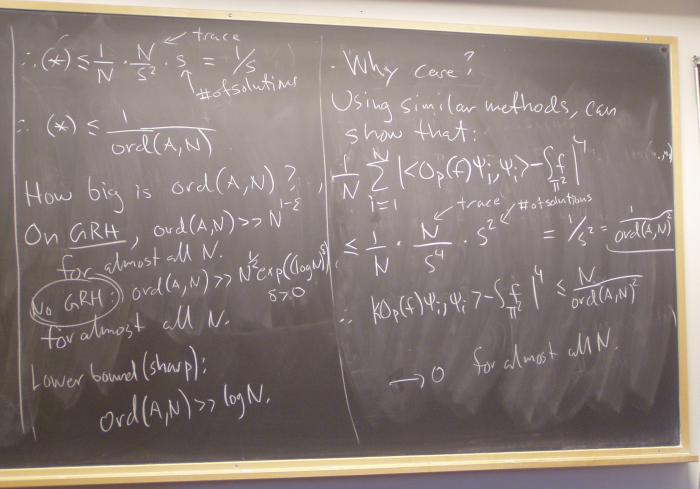 ∴ (*) ≤ 1/N · N/S² · S = 1/S
trace
# of solutions
∴ (*) ≤ 1/ord(A,N)
How big is ord(A,N)?
On GRH, ord(A,N) >> N^{1-ε}
for almost all N.
No GRH: ord(A,N) >> N^{1/2} exp((log N)^δ)
δ>0
for almost all N.
Lower bound (sharp):
ord(A,N) >> log N.
Why care?
Using similar methods, can
show that:
1/N Σ_{i=1}^{N} |<Op(f)Ψi,Ψi> - ∫_{π²} f|^4
trace
# of solutions
≤ 1/N · N/S^4 · S² = 1/S² = 1/ord(A,N)²
∴ |<Op(f)Ψi,Ψi> - ∫_{π²} f|^4 ≤ N/ord(A,N)²
→ 0 for almost all N.